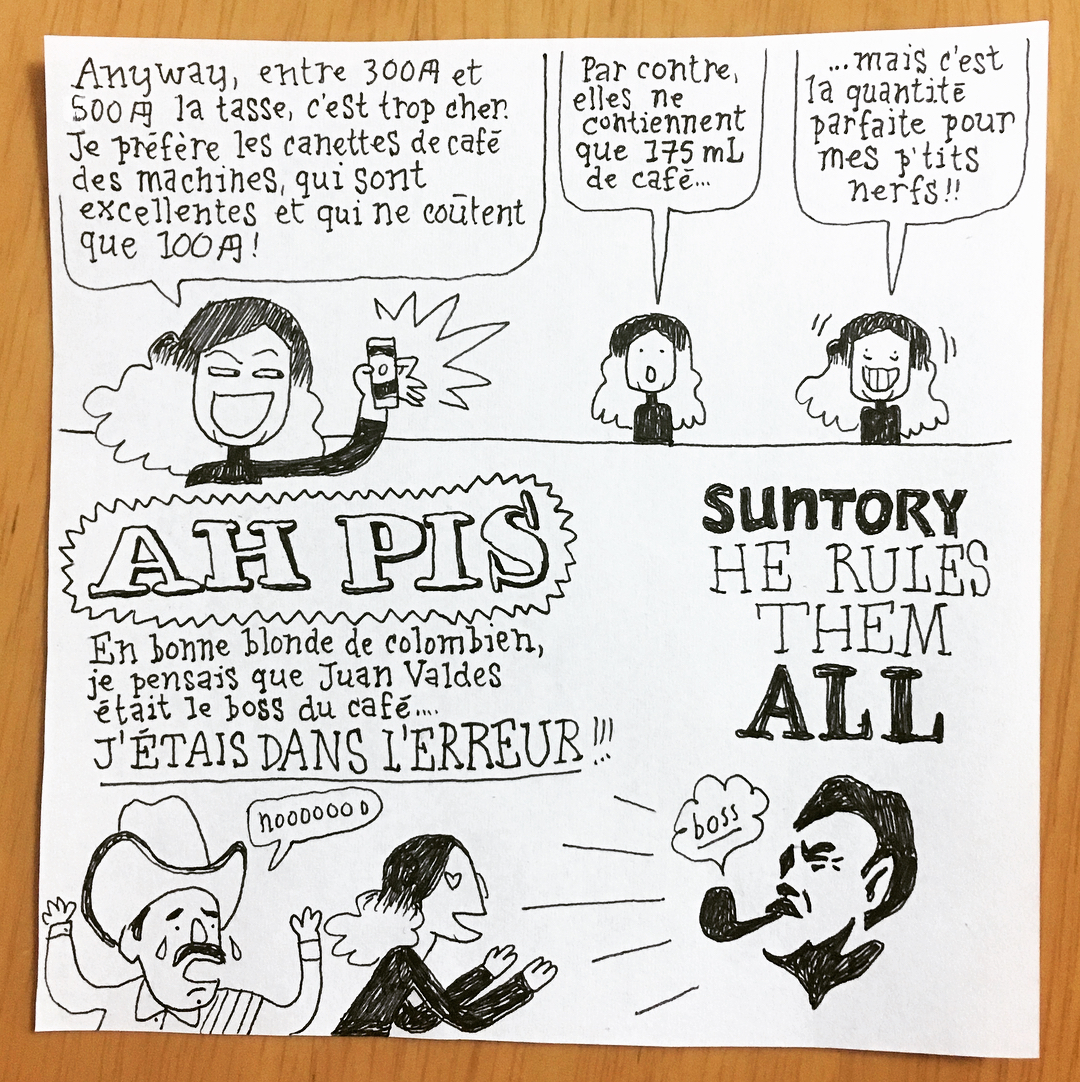 Anyway, entre 300円 et
500円 la tasse, c'est trop cher.
Je préfère les canettes de café
des machines, qui sont
excellentes et qui ne coûtent
que 100円!
Par contre,
elles ne
contiennent
que 175 mL
de café...
...mais c'est
la quantité
parfaite pour
mes p'tits
nerfs!!
AH PIS
En bonne blonde de colombien,
je pensais que Juan Valdes
était le boss du café....
J'ÉTAIS DANS L'ERREUR!!!
nooooooo
SUNTORY
HE RULES
THEM
ALL
boss